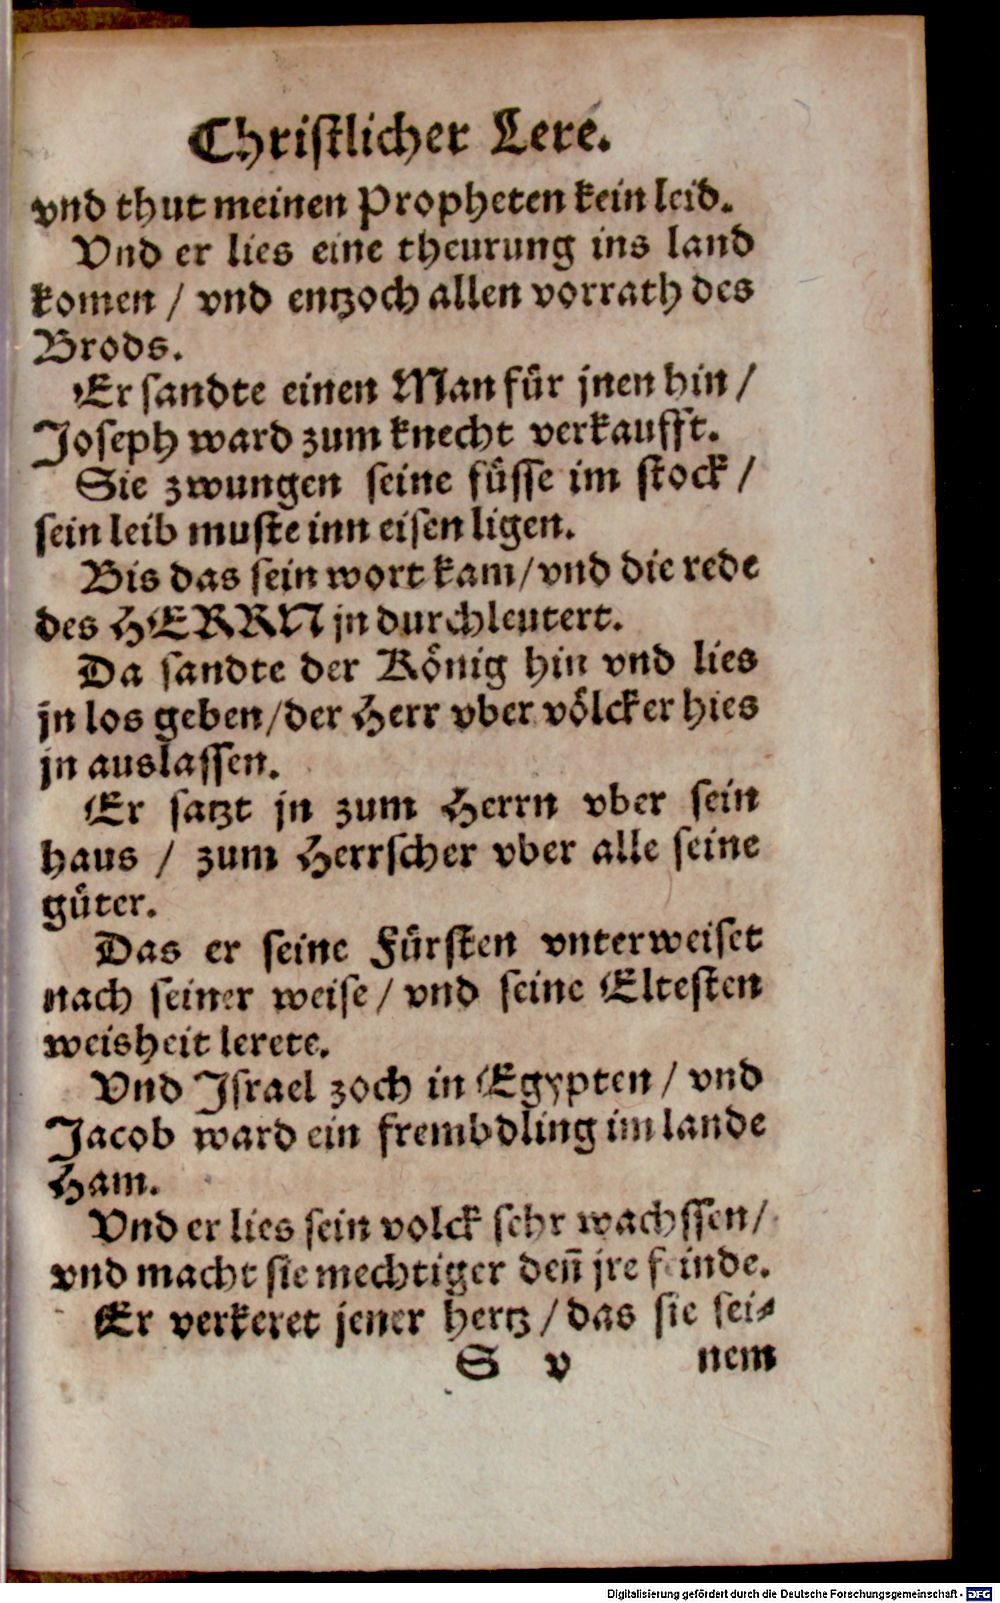 Christlicher Lere.
vnd thut meinen Propheten kein leid.
Vnd er lies eine theurung ins land
komen / vnd entzoch allen vorrath des
Brods.
Er sandte einen Man für jnen hin /
Joseph ward zum knecht verkaufft.
Sie zwungen seine füsse im stock /
sein leib muste inn eisen ligen.
Bis das sein wort kam / vnd die rede
des HERRN jn durchleutert.
Da sandte der König hin vnd lies
jn los geben / der Herr vber völcker hies
jn auslassen.
Er satzt jn zum Herrn vber sein
haus / zum Herrscher vber alle seine
güter.
Das er seine Fürsten vnterweiset
nach seiner weise / vnd seine Eltesten
weisheit lerete.
Vnd Israel zoch in Egypten / vnd
Jacob ward ein frembdling im lande
Ham.
Vnd er lies sein volck sehr wachssen /
vnd macht sie mechtiger deñ jre feinde.
Er verkeret jener hertz / das sie sei-
S v nem
Digitalisierung gefördert durch die Deutsche Forschungsgemeinschaft - DFG